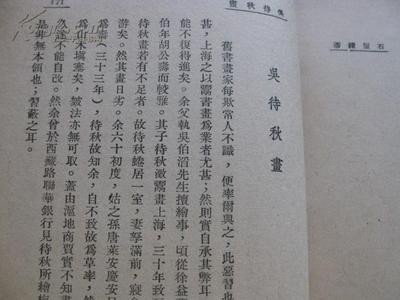 石屋續瀋
吳待秋畫
171
吳待秋畫
舊書畫家每欺常人不識，便率爾與之，此惡習也
甚，上海之以鬻書畫爲業者尤甚；然則實自承其弊耳
能不復得進矣。余父執吳伯滔先生擅繪事，頃從徐益
伯年胡公壽而較雅。其子待秋敵鬻畫上海，三十年致
待秋畫若有不足者。故待秋蜷居一室，妻孥滿前，寢
游矣。然其畫日劣。余六十初度，姑之孫唐萊安慶安
爲壽（三十三年），待秋故知余，自不致故爲草率，
爲山木塡塞矣，皴法亦無可取。蓋由滬地商賈實不知畫
久遂不能自改。然余曾於西藏路聯華銀行見待秋所繪
是非無本領也；習蔽之耳。